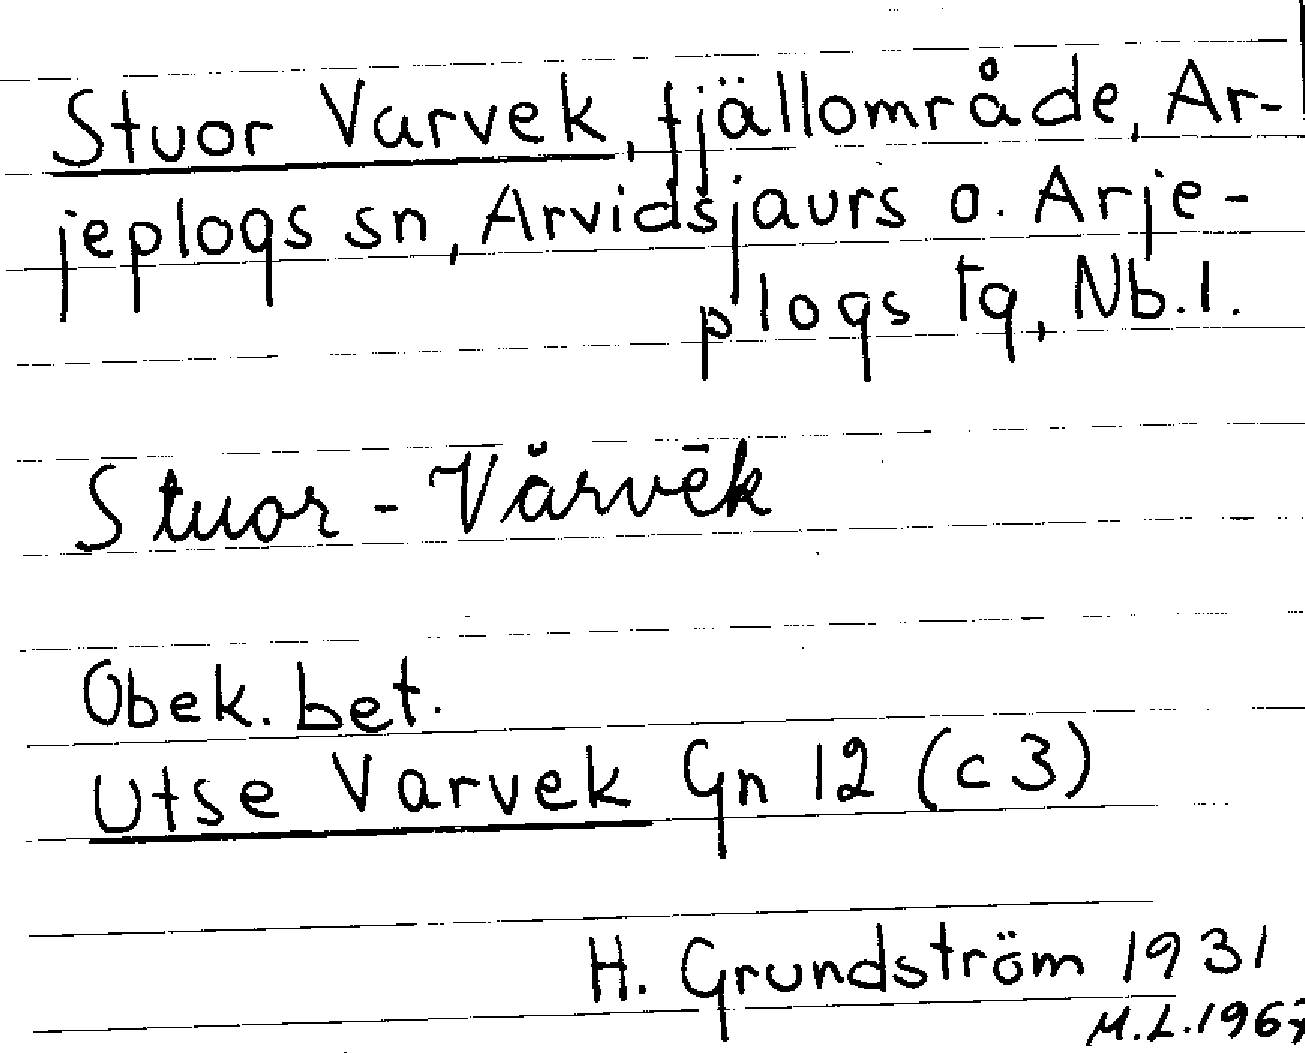 Stuor Varvek, fjällområde, Ar-
jeplogs sn, Arvidsjaurs o. Arje-
plogs tg, Nb. l.
Stuor - Vărvēk
Obek. bet.
Utse Varvek Gn 12 (c 3)
H. Grundström 1931
M.L. 1967